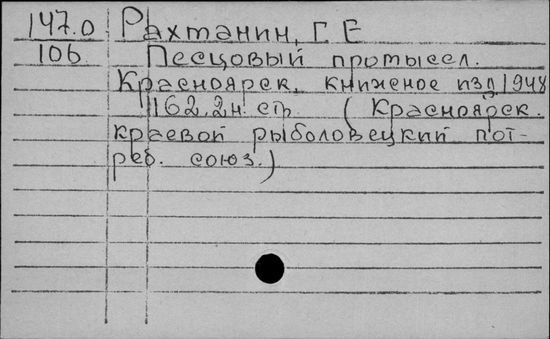 147.0 Рахтанин, Г. Е
106 Песцовый промысел.
Красноярск, книжное изд 1948
162, 2 н. стр. (Красноярск.
краевой рыболовецкий пот-
реб. союз.)